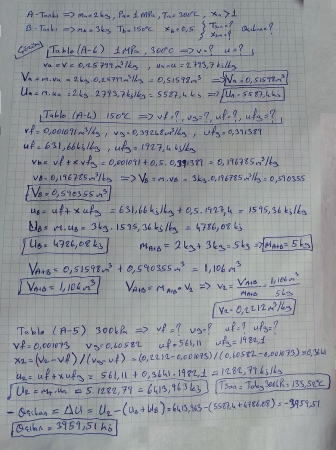 A-Tankı => mA=2kg, PA=1 MPa, TA=300°C, xA>1
B-Tankı => mB=3kg TB=150°C xB=0,5
Çözüm
Tablo (A-6) 1 MPa, 300°C => v=? u=?
vA=v=0,25799 m³/kg, uA=u=2793,7 kJ/kg
VA=m.vA=2kg.0,25799 m³/kg=0,51598 m³ => VA=0,51598 m³
UA=m.uA=2kg.2793,7 kJ/kg=5587,4 kJ => UA=5587,4 kJ
Tablo (A-4) 150°C => vf=?, vg=?, uf=?, ufg=?
vf=0,001091 m³/kg, vg=0,39248 m³/kg, vfg=0,391389
uf=631,66 kJ/kg, ufg=1927,4 kJ/kg
vB=vf+x vfg=0,001091+0,5.0,391389=0,196785 m³/kg
vB=0,196785 m³/kg => VB=m.vB=3kg.0,196785 m³/kg=0,590355
VB=0,590355 m³
uB=uf+x ufg=631,66 kJ/kg+0,5.1927,4=1595,36 kJ/kg
UB=m.uB=3kg.1595,36 kJ/kg=4786,08 kJ
UB=4786,08 kJ mA+B=2kg+3kg=5kg => mA+B=5kg
VA+B=0,51598 m³+0,590355 m³=1,106 m³
VA+B=1,106 m³ VA+B=mA+B.v2 => v2=VA+B/mA+B=1,106 m³/5kg
v2=0,2212 m³/kg
Tablo (A-5) 300kPa => vf=? vg=? uf=? ufg=?
vf=0,001073 vg=0,60582 uf=561,11 ufg=1982,1
x2=(v2-vf)/(vg-vf)=(0,2212-0,001073)/(0,60582-0,001073)=0,3641
u2=uf+x ufg=561,11+0,3641.1982,1=1282,79 kJ/kg
U2=mT.u2=5.1282,79=6413,963 kJ Tson=Tdoy300kPa=133,52°C
-Qçıkan=ΔU=U2-(UA+UB)=6413,963-(5587,4+4786,08)=-3959,51
Qçıkan=3959,51 kJ